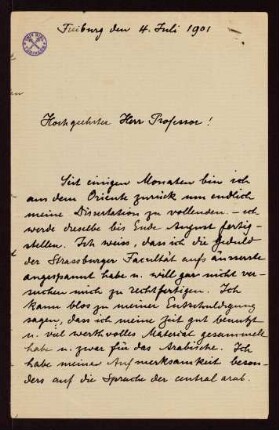 Freiburg den 4. Juli 1901
Hochgeehrter Herr Professor!
Seit einigen Monaten bin ich
aus dem Oriente zurück um endlich
meine Dissertation zu vollenden. – ich
werde dieselbe bis Ende August fertig-
stellen. Ich weiss, dass ich die Geduld
der Strassburger Facultät aufs äusserste
angespannt habe u. will gar nicht ver-
suchen mich zu rechtfertigen. Ich
kann blos zu meiner Entschuldigung
sagen, dass ich meine Zeit gut benutzt
u. viel werthvolles Material gesammelt
habe u. zwar für das Arabische. Ich
habe meine Aufmerksamkeit beson-
ders auf die Sprache der central arab.